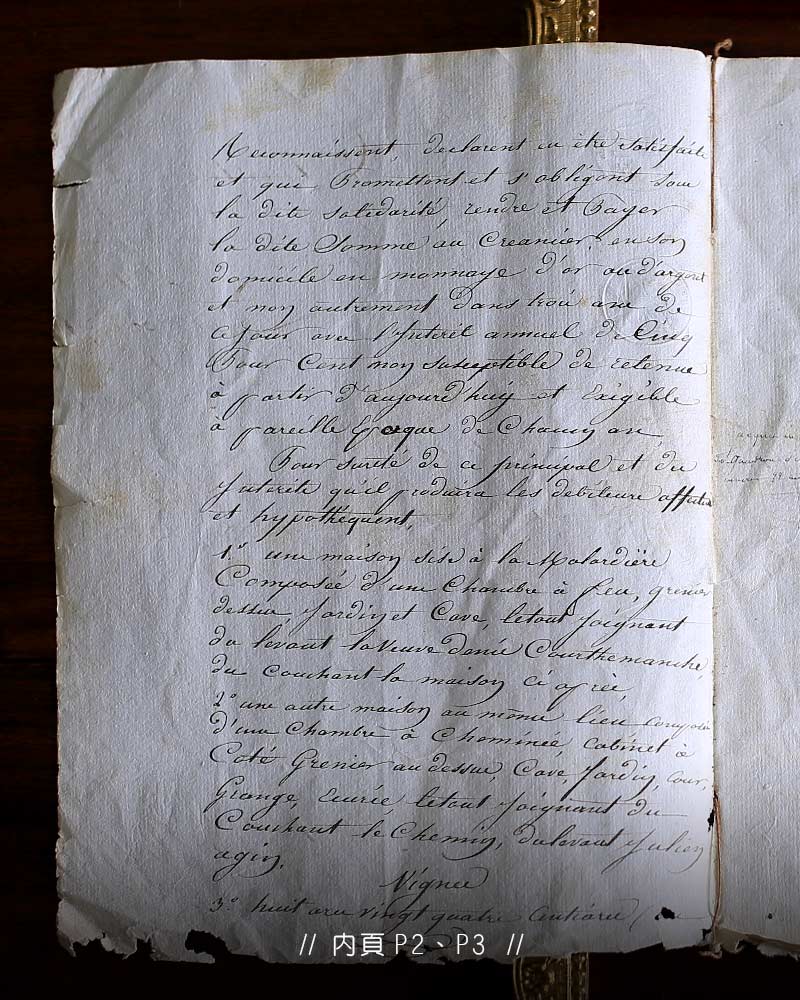 Reconnaissent, declarent en être satisfaits
et que Promettent et s'obligent sous
la dite solidarité, rendre et Payer
la dite Somme au Creancier, en son
domicile en monnaye d'or ou d'argent
et non autrement dans trois ans de
ce jour avec l'Interêt annuel de Cinq
Pour Cent non susceptible de retenue
à partir d'aujourd'huy et Exigible
à pareille Epoque de Chaque an,
Pour sureté de ce principal et des
Interêts qu'il produira les debiteurs affectent
et hypothéquent,
1.° une maison sise à la Malardière
Composée d'une Chambre à feu, grenier
dessus, Jardin et Cave, letout joignant
du levant la Veuve denis Courthemanche,
du couchant la maison ci après,
2.° une autre maison au même lieu composée
d'une Chambre à Cheminée, Cabinet à
Coté Grenier au dessus, Cave, Jardin, cour,
Grange, Ecurie, letout joignant du
Couchant le Chemin, du levant Julien
agin,
Vignes
3.° huit ares vingt quatre Centiares
// 內頁 P2、P3 //